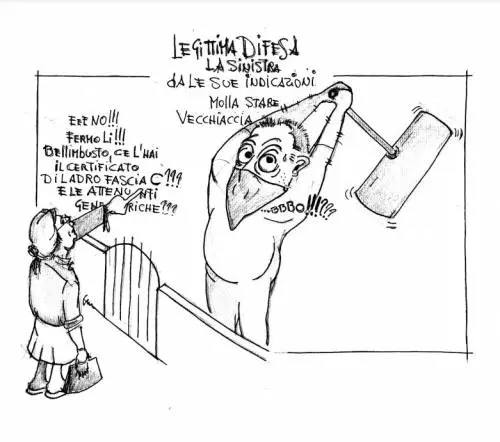 LEGITTIMA DIFESA
LA SINISTRA
DA LE SUE INDICAZIONI
MOLLA STARE
VECCHIACCIA
EEE NO!!!
FERMO LI!!!
BELLIMBUSTO, CE L'HAI
IL CERTIFICATO
DI LADRO FASCIA C???
E LE ATTENU NTI
GENE RICHE???
...BBBO!!!???